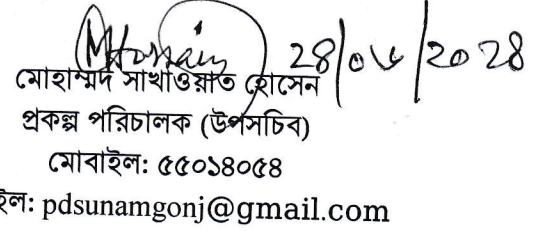 MHossain ২৪/০৬/২০২৪
মোহাম্মদ সাখাওয়াত হোসেন
প্রকল্প পরিচালক (উপসচিব)
মোবাইল: ৫৫০১৪০৫৪
ইল: pdsunamgonj@gmail.com